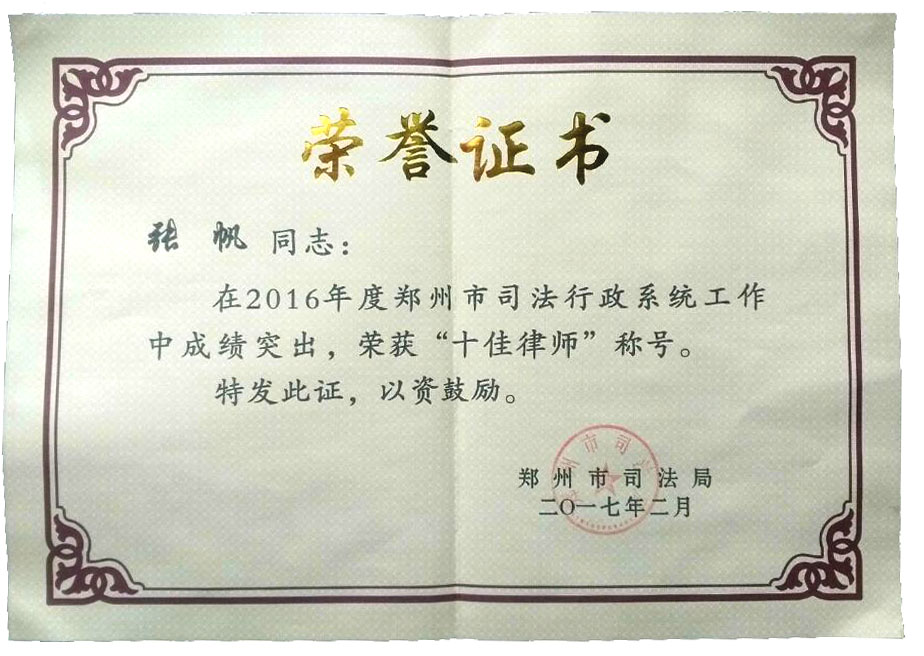 荣誉证书
张 帆 同志：
在2016年度郑州市司法行政系统工作
中成绩突出，荣获“十佳律师”称号。
特发此证，以资鼓励。
郑州市司法局
二〇一七年二月